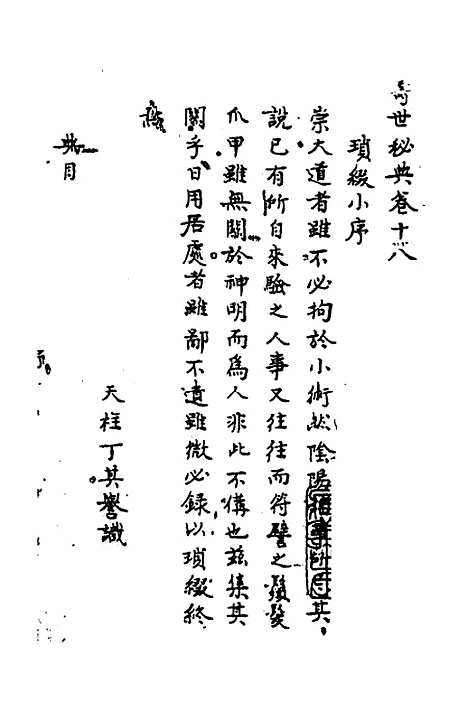 壽世秘典卷十八
瑣綴小序
崇大道者雖不必拘於小術然陰陽其
說已有所自來驗之人事又往往而符譬之鬚髮
爪甲雖無關於神明而為人非此不備也茲集其
關乎日用居處者雖鄙不遺雖微必錄以瑣綴終
焉
天柱丁其譽識
典目